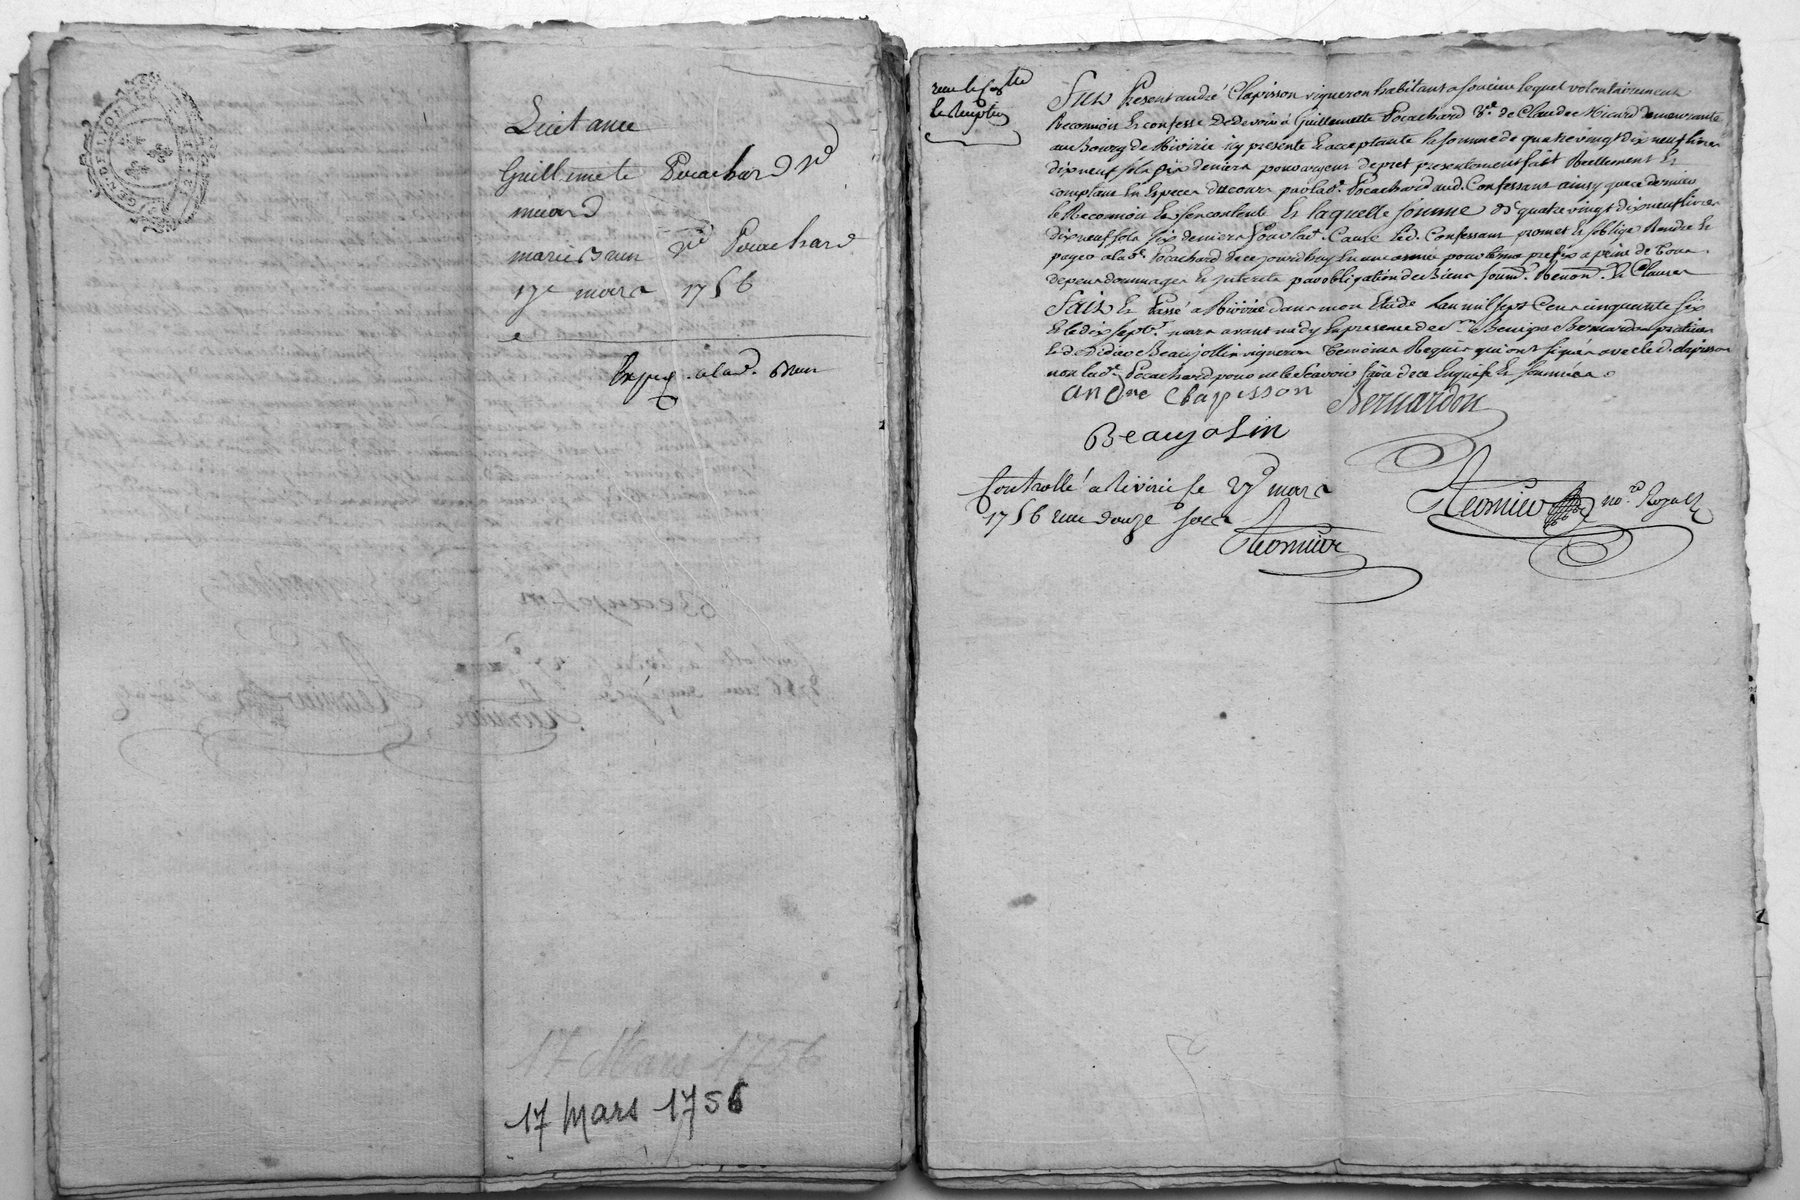 GEN DE LYON
Quictance
Guillimete Pocachard Vᵉ
micard
marie Brun Vᵉ Pocachard
17ᵉ mars 1756
Expiẽ a lad. Brun
17 Mars 1756
17 Mars 1756
Fut Present andré Clapisson vigneron habitant a Soucieu lequel volontairement
Reconnoit Et confesse De devoir à Guillemette Pocachard Vᵉ de Claude Micard demeurante
au Bourg de Rivirie icy presente Et acceptante la somme de quatre vingt dix neuf livres
dix neuf sols six deniers pour argent de pret presentement fait Reellement Et
comptant En Especes du cours par lad. Pocachard aud. Confessant ainsy que ce dernier
le Reconnoit Et s'en contente Et laquelle somme de quatre vingt dix neuf livres
dix neuf sols six deniers pour lad. Cause led. Confessant promet Et s'oblige Rendre Et
payer a lad. Pocachard de ce jourdhuy En une année pour terme prefix a peine de tous
depens dommages Et interets par obligation de Biens soum. Renon. Et Clauses
Fait Et Passé a Rivirie dans mon Etude L'an mil sept Cent cinquante six
Et le dix sept. mars avant midy En presence de sʳ Benigne Bernardon praticien
Et de Didier Beaujollin vigneron temoins Requis qui ont signés avec led. Clapisson
non lad. Pocachard pour ne le sçavoir faire de ce Enquise Et sommée
andre Clapisson
Bernardon
Beaujolin
Controllé a Rivirie le mars
1756 reçu douze sols
noʳᵉ Royal